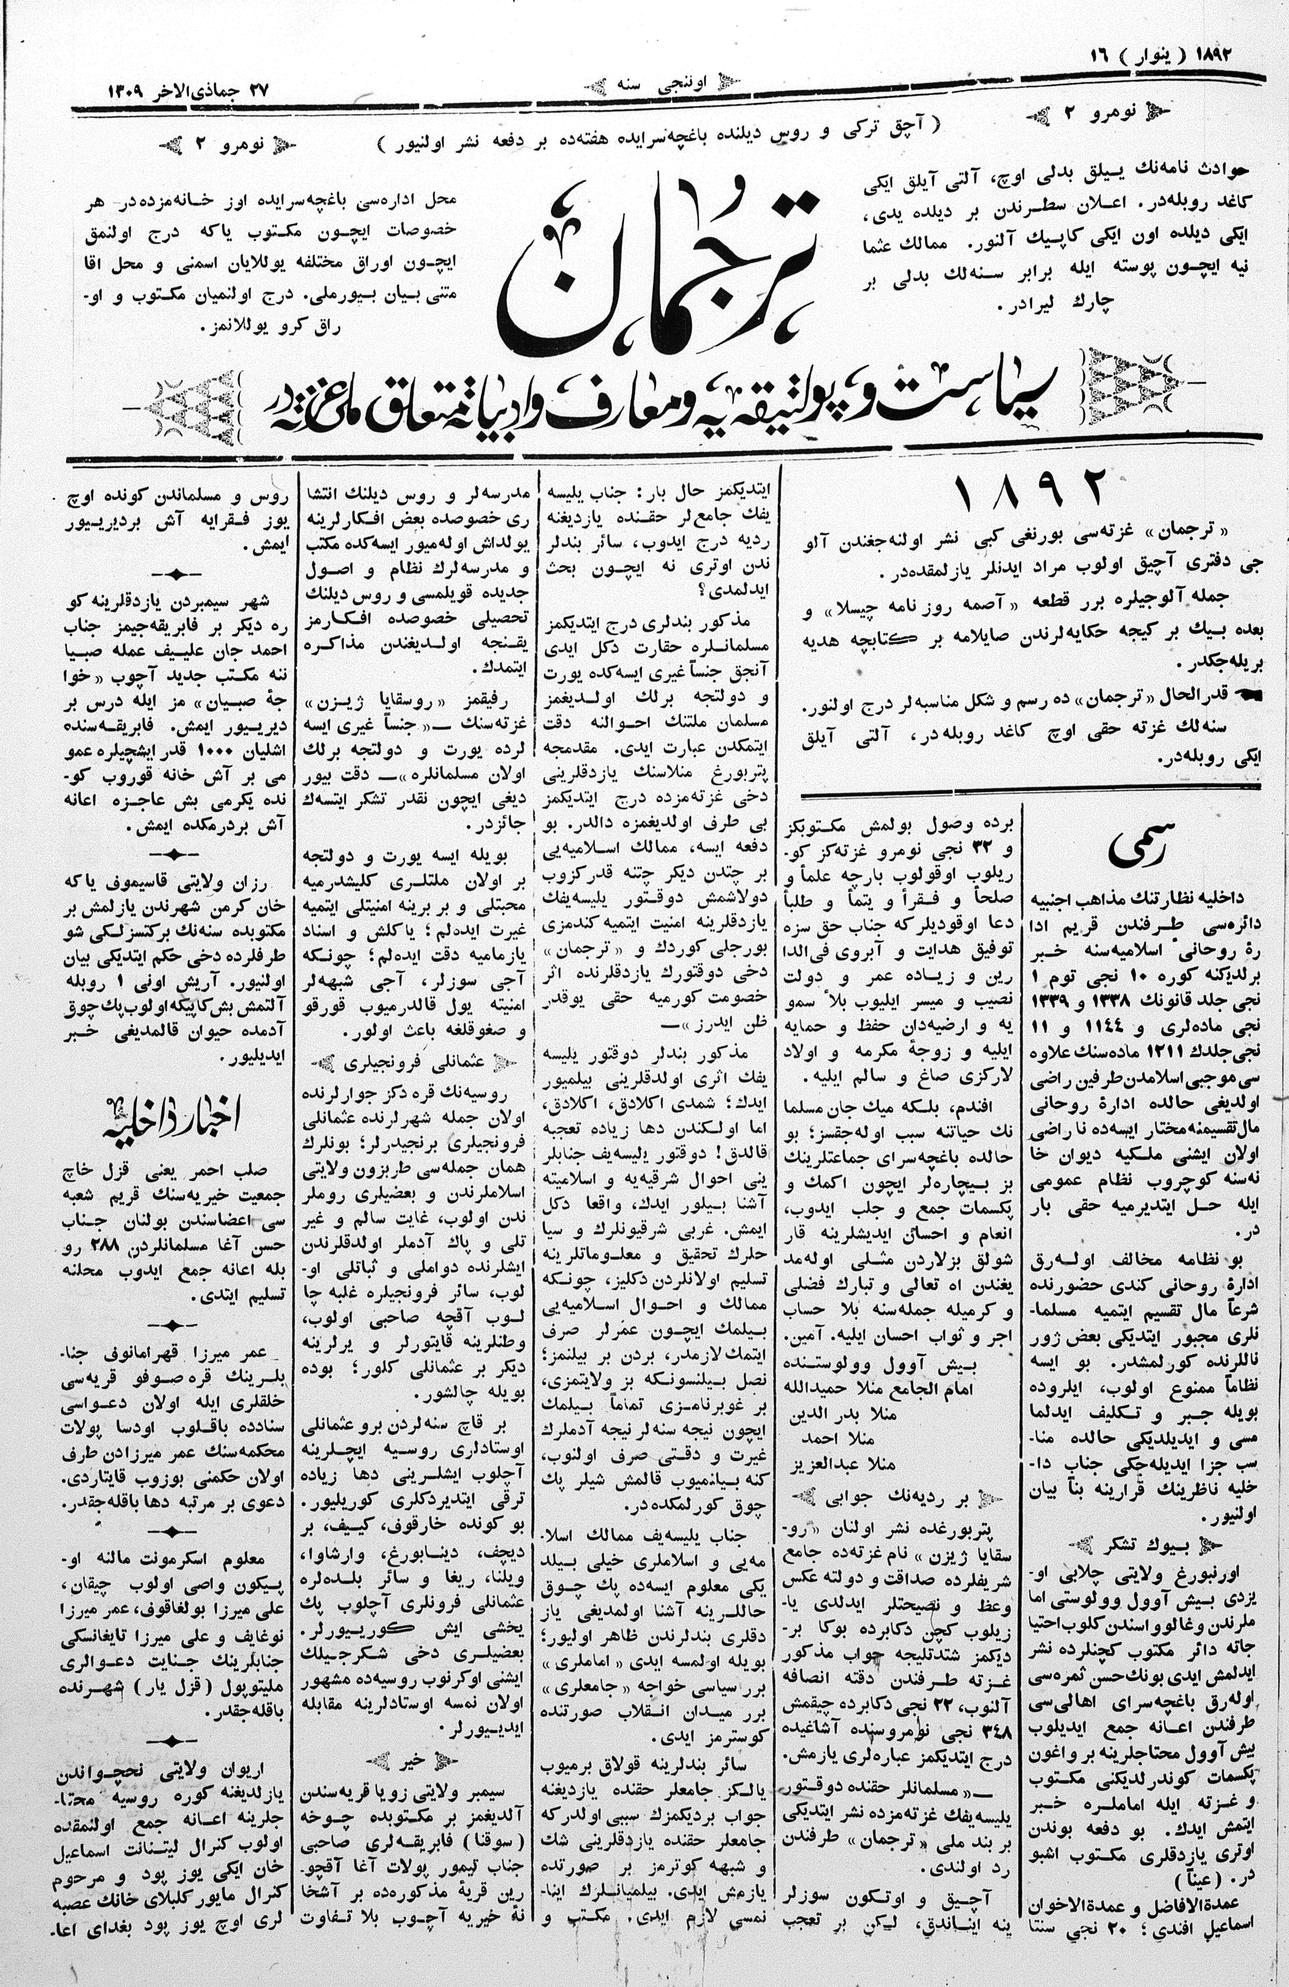 ١٨٩٢ ( ینوار ) ١٦
اوننجی سنه
٢٧ جماذی‌الاخر ١٣٠٩
نومرو ٢
( آچق ترکی و روس دیلنده باغچه‌سرایده هفته‌ده بر دفعه نشر اولنیور )
نومرو ٢
حوادث نامه‌نك ییلق بدلی اوچ، آلتی آیلق ایکی
کاغد روبله‌در. اعلان سطرندن بر دیلده یدی،
ایکی دیلده اون ایکی کاپیك آلنور. ممالك عثما
نیه ایچون پوسته ایله برابر سنه‌لك بدلی بر
چارك لیرادر.
ترجمان
محل اداره‌سی باغچه‌سرایده اوز خانه‌مزده‌در هر
خصوصات ایچون مکتوب یاکه درج اولنمق
ایچون اوراق مختلفه یوللایان اسمنی و محل اقا
متنی بیان بیورملی. درج اولنمیان مکتوب و او-
راق کرو یوللانمز.
سیاست و پولتیقه یه و معارف و ادبیاته متعلق ملی غزته‌در
١٨٩٢
« ترجمان» غزته‌سی بورنغی کبی نشر اولنه‌جغندن آلو
جی دفتری آچیق اولوب مراد ایدنلر یازلمقده‌در.
جمله آلوجیلره برر قطعه «آصمه روز نامه چیسلا» و
بعده بیك بر کیجه حکایه‌لرندن صایلامه بر کتابچه هدیه
بریله‌جکدر.
قدرالحال «ترجمان» ده رسم و شکل مناسبه‌لر درج اولنور.
سنه‌لك غزته حقی اوچ کاغد روبله‌در، آلتی آیلق
ایکی روبله‌در.
رسمی
داخلیه نظارتنك مذاهب اجنبیه
دائره‌سی طرفندن قریم ادا
رۀ روحانی اسلامیه‌سنه خبر
برلدیکنه کوره ١٠ نجی توم ١
نجی جلد قانونك ١٣٣٨ و ١٣٣٩
نجی ماده‌لری و ١١٤٤ و ١١
نجی‌جلدك ١٢١١ ماده‌سنك علاوه
سی موجبی اسلامدن طرفین راضی
اولدیغی حالده ادارۀ روحانی
مال تقسیمنه مختار ایسه‌ده نا راضی
اولان ایشنی ملکیه دیوان خا
نه‌سنه کوچروب نظام عمومی
ایله حل ایتدیرمیه حقی بار
در.
بو نظامه مخالف اوله‌رق
ادارۀ روحانی کندی حضورنده
شرعاً مال تقسیم ایتمیه مسلما-
نلری مجبور ایتدیکی بعض ژور
ناللرنده کورلمشدر. بو ایسه
نظاماً ممنوع اولوب، ایلروده
بویله جبر و تکلیف ایدلما
مسی و ایدیلدیکی حالده منا-
سب جزا ایدیله‌جکی جناب دا-
خلیه ناظرینك قرارینه بناً بیان
اولنیور.
بیوك تشکر
اورنبورغ ولایتی چلابی او-
یزدی بیش آوول وولوستی اما
ملرندن وغالو واسندن کلوب احتیا
جاته دائر مکتوب کچنلرده نشر
ایدلمش ایدی بونك حسن ثمره‌سی
اوله‌رق باغچه‌سرای اهالی‌سی
طرفندن اعانه جمع ایدیلوب
بیش آوول محتاجلرینه بر واغون
پکسمات کوندرلدیکنی مکتوب
و غزته ایله اماملره خبر
ایتمش ایدك. بو دفعه بوندن
اوتری یازدقلری مکتوب اشبو
در. (عیناً)
عمدةالافاضل و عمدةالاخوان
اسماعیل افندی؛ ٢٠ نجی سنتا
برده وصول بولمش مکتوبکز
و ٣٢ نجی نومرو غزته‌کز کو-
ریلوب اوقولوب بارچه علماً و
صلحاً و فقراً و یتماً و طلباً
دعا اوقودیلر که جناب حق سزه
توفیق هدایت و آبروی فی‌الدا
رین و زیاده عمر و دولت
نصیب و میسر ایلیوب بلاً سمو
یه و ارضیه‌دان حفظ و حمایه
ایلیه و زوجۀ مکرمه و اولاد
لارکزی صاغ و سالم ایلیه.
افندم، بلکه میك جان مسلما
نك حیاتنه سبب اوله‌جقسز؛ بو
حالده باغچه‌سرای جماعتلرینك
بز بیچاره‌لر ایچون اکمك و
پکسمات جمع و جلب ایدوب،
انعام و احسان ایدیشلرینه قار
شولق بزلاردن مثلی اوله‌مد
یغندن اه تعالی و تبارك فضلی
و کرمیله جمله‌سنه بلا حساب
اجر و ثواب احسان ایلیه. آمین.
بیش آوول وولوستنده
امام الجامع منلا حمیدالله
منلا بدر الدین
منلا احمد
منلا عبدالعزیز
بر ردیه‌نك جوابی
پتربورغده نشر اولنان «رو-
سقایا ژیزن» نام غزته‌ده جامع
شریفلرده صداقت و دولته عکس
وعظ و نصیحتلر ایدلدی یا-
زیلوب کچن دکابرده بوکا بر-
دیکمز شدتلیجه جواب مذکور
غزته طرفندن دقت انصافه
آلنوب، ٢٢ نجی دکابرده چیقمش
٣٤٨ نجی نومروسنده آشاغیده
درج ایتدیکمز عباره‌لری یازمش.
—«مسلمانلر حقنده دوقتور
یلیسه‌یفك غزته‌مزده نشر ایتدیکی
بر بند ملی «ترجمان» طرفندن
رد اولندی.
آچیق و اوتکون سوزلر
ینه ایناندق، لیکن بر تعجب
ایتدیکمز حال بار: جناب یلیسه
یفك جامع‌لر حقنده یازدیغنه
ردیه درج ایدوب، سائر بندلر
ندن اوتری نه ایچون بحث
ایدلمدی؟
مذکور بندلری درج ایتدیکمز
مسلمانلره حقارت دکل ایدی
آنجق جنساً غیری ایسه‌کده یورت
و دولتجه برلك اولدیغمز
مسلمان ملتنك احوالنه دقت
ایتمکدن عبارت ایدی. مقدمجه
پتربورغ منلاسنك یازدقلرینی
دخی غزته‌مزده درج ایتدیکمز
بی طرف اولدیغمزه دالدر. بو
دفعه ایسه، ممالك اسلامیه‌یی
بر چتدن دیگر چتنه قدر کزوب
دولاشمش دوقتور یلیسه‌یفك
یازدقلرینه امنیت ایتمیه کندمزی
بورجلی کوردك و «ترجمان»
دخی دوقتورك یازدقلرنده اثر
خصومت کورمیه حقی یوقدر
ظن ایدرز»—
مذکور بندلر دوقتور یلیسه
یفك اثری اولدقلرینی بیلمیور
ایدك؛ شمدی اکلادق، اکلادق،
اما اولکندن دها زیاده تعجبه
قالدق! دوقتور یلیسه‌یف جنابلر
ینی احوال شرقیه‌یه و اسلامیته
آشنا بیلور ایدك، واقعا دکل
ایمش. غربی شرقیونلرك و سیا
حلرك تحقیق و معلوماتلرینه
تسلیم اولانلردن دکلیز، چونکه
ممالك و احوال اسلامیه‌یی
بیلمك ایچون عمرلر صرف
ایتمك لازمدر، بردن بر بیلنمز؛
نصل بیلنسونکه بز ولایتمزی،
بر غوبرنامزی تماماً بیلمك
ایچون نیجه سنه‌لر نیجه آدملرك
غیرت و دقتی صرف اولنوب،
کنه بیلنمیوب قالمش شیلر پك
چوق کورلمکده‌در.
جناب یلیسه‌یف ممالك اسلا-
مه‌یی و اسلاملری خیلی بیلد
یکی معلوم ایسه‌ده پك چوق
حاللرینه آشنا اولمدیغی یاز
دقلری بندلرندن ظاهر اولیور؛
بویله اولمسه ایدی «اماملری»
برر سیاسی خواجه «جامعلری»
برر میدان انقلاب صورتنده
کوسترمز ایدی.
سائر بندلرینه قولاق برمیوب
یالکز جامعلر حقنده یازدیغنه
جواب بردیکمزك سببی اولدرکه
جامعلر حقنده یازدقلرینی شك
و شبهه کوترمز بر صورتده
یازمش ایدی. بیلمیانلرك اینا-
نمسی لازم ایدی. مکتب و
مدرسه‌لر و روس دیلنك انتشا
ری خصوصده بعض افکارلرینه
یولداش اوله‌میور ایسه‌کده مکتب
و مدرسه‌لرك نظام و اصول
جدیده قویلمسی و روس دیلنك
تحصیلی خصوصده افکارمز
یقنجه اولدیغندن مذاکره
ایتمدك.
رفیقمز «روسقایا ژیزن»
غزته‌سنك —«جنساً غیری ایسه
لرده یورت و دولتجه برلك
اولان مسلمانلره»— دقت بیور
دیغی ایچون نقدر تشکر ایتسه‌ك
جائزدر.
بویله ایسه یورت و دولتجه
بر اولان ملتلری کلیشدرمیه
محبتلی و بر برینه امنیتلی ایتمیه
غیرت ایده‌لم؛ یاکلش و اسناد
یازمامیه دقت ایده‌لم؛ چونکه
آجی سوزلر، آجی شبهه‌لر
امنیته یول قالدرمیوب قورقو
و صغوقلغه باعث اولور.
عثمانلی فرونجیلری
روسیه‌نك قره دکز جوارلرنده
اولان جمله شهرلرنده عثمانلی
فرونجیلری برنجیدرلر؛ بونلرك
همان جمله‌سی طربزون ولایتی
اسلاملرندن و بعضیلری روملر
ندن اولوب، غایت سالم و غیر
تلی و پاك آدملر اولدقلرندن
ایشلرنده دواملی و ثباتلی او-
لوب، سائر فرونجیلره غلبه چا
لوب آقچه صاحبی اولوب،
وطنلرینه قایتورلر و یرلرینه
دیکر بر عثمانلی کلور؛ بوده
بویله چالشور.
بر قاچ سنه‌لردن برو عثمانلی
اوستادلری روسیه ایچلرینه
آچلوب ایشلرینی دها زیاده
ترقی ایتدیردکلری کوریلیور.
بو کونده خارقوف، کییف، بر
دیچف، دینابورغ، وارشاوا،
ویلنا، ریغا و سائر بلده‌لره
عثمانلی فرونلری آچلوب پك
یخشی ایش کوریورلر.
بعضیلری دخی شکرجیلك
ایشنی اوکرنوب روسیه‌ده مشهور
اولان نمسه اوستادلرینه مقابله
ایدیورلر.
خیر
سیمبر ولایتی زویا قریه‌سندن
آلدیغمز بر مکتوبده چوخه
(سوقنا) فابریقه‌لری صاحبی
جناب تیمور پولات آغا آقچو-
رین قریۀ مذکوره‌ده بر آشخا
نۀ خیریه آچوب بلا تفاوت
روس و مسلماندن کونده اوچ
یوز فقرایه آش بردیریور
ایمش.
شهر سیمبردن یازدقلرینه کو
ره دیکر بر فابریقه‌جیمز جناب
احمد جان علییف عمله صبیا
ننه مکتب جدید آچوب «خوا
جۀ صبیان» مز ایله درس بر
دیریور ایمش. فابریقه‌سنده
اشلیان ١٠٠٠ قدر ایشچیلره عمو
می بر آش خانه قوروب کو-
نده یکرمی بش عاجزه اعانه
آش بردرمکده ایمش.
رزان ولایتی قاسیموف یاکه
خان کرمن شهرندن یازلمش بر
مکتوبده سنه‌نك برکتسزلکی شو
طرفلرده دخی حکم ایتدیکی بیان
اولنیور. آریش اونی ١ روبله
آلتمش بش‌کاپیکه اولوب‌پك چوق
آدمده حیوان قالمدیغی خبر
ایدیلیور.
اخبار داخلیه
صلب احمر یعنی قزل خاچ
جمعیت خیریه‌سنك قریم شعبه
سی اعضاسندن بولنان جناب
حسن آغا مسلمانلردن ٢٨٨ رو
بله اعانه جمع ایدوب محلنه
تسلیم ایتدی.
عمر میرزا قهرامانوف جنا-
بلرینك قره صوفو قریه‌سی
خلقلری ایله اولان دعواسی
سنادده باقلوب اودسا پولات
محکمه‌سنك عمر میرزادن طرف
اولان حکمنی بوزوب قایتاردی.
دعوی بر مرتبه دها باقله‌جقدر.
معلوم اسکرمونت مالنه او-
پیکون واصی اولوب چیقان،
علی میرزا بولغاقوف، عمر میرزا
نوغایف و علی میرزا تایغانسکی
جنابلرینك جنایت دعوالری
ملیتوپول (قزل یار) شهرنده
باقله‌جقدر.
اریوان ولایتی نحچواندن
یازلدیغنه کوره روسیه محتا-
جلرینه اعانه جمع اولنمقده
اولوب کنرال لیتنانت اسماعیل
خان ایکی یوز پود و مرحوم
کنرال مایور کلبلای خانك عصبه
لری اوچ یوز پود بغدای اعا-